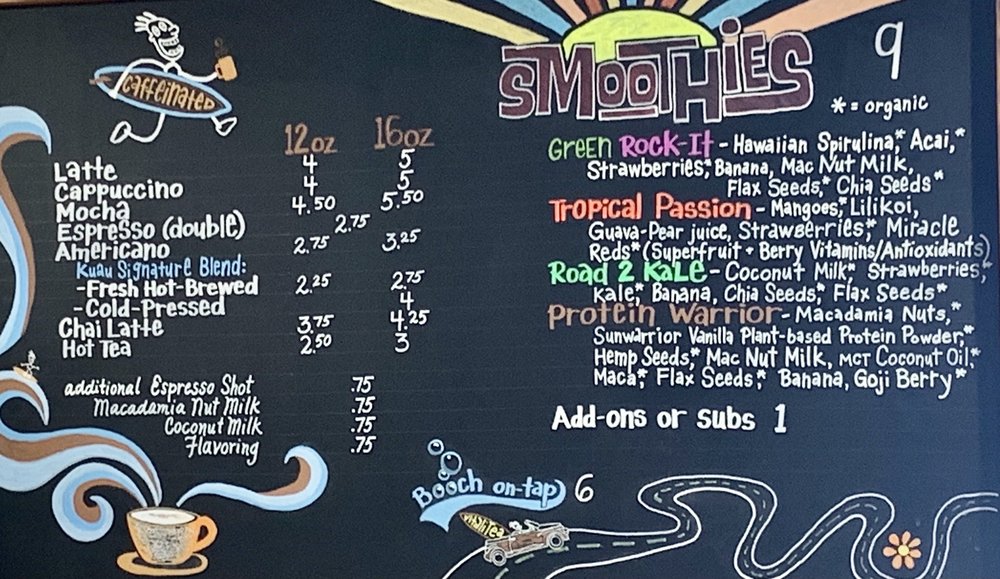 caffeinated
12oz 16oz
Latte 4 5
Cappuccino 4 5
Mocha 4.50 5.50
Espresso (double) 2.75
Americano 2.75 3.25
Kuau Signature Blend:
-Fresh Hot-Brewed 2.25 2.75
-Cold-Pressed 4
Chai Latte 3.75 4.25
Hot Tea 2.50 3
additional Espresso Shot .75
Macadamia Nut Milk .75
Coconut Milk .75
Flavoring .75
SMOOTHIES 9
* = organic
Green Rock-It - Hawaiian Spirulina,* Acai,*
Strawberries,* Banana, Mac Nut Milk,
Flax Seeds,* Chia Seeds*
Tropical Passion - Mangoes,* Lilikoi,
Guava-Pear juice, Strawberries,* Miracle
Reds* (Superfruit + Berry Vitamins/Antioxidants)
Road 2 Kale - Coconut Milk,* Strawberries,*
Kale,* Banana, Chia Seeds,* Flax Seeds*
Protein Warrior - Macadamia Nuts,*
Sunwarrior Vanilla Plant-based Protein Powder,*
Hemp Seeds,* Mac Nut Milk, MCT Coconut Oil,*
Maca,* Flax Seeds,* Banana, Goji Berry*
Add-ons or subs 1
Booch on-tap 6
VitaliTea